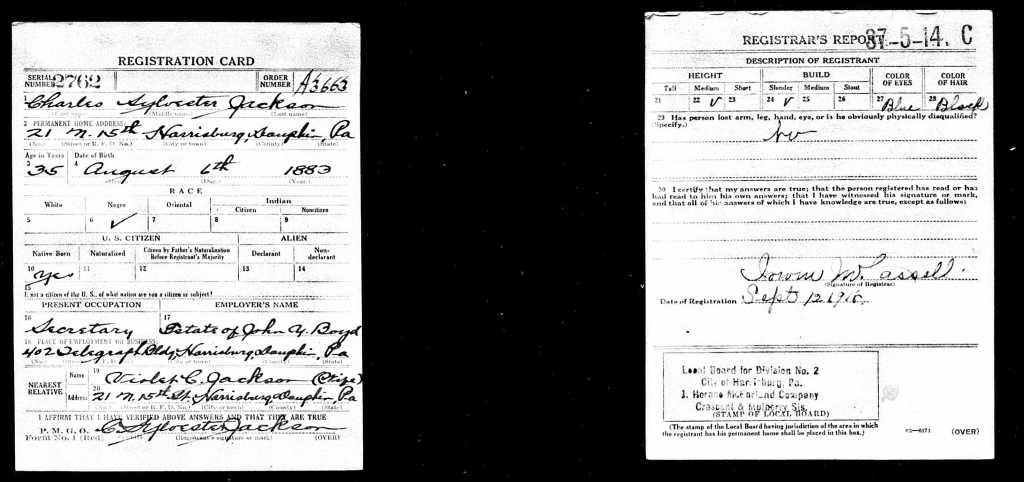 REGISTRATION CARD
SERIAL NUMBER 2762 ORDER NUMBER A3663
1 Charles Sylvester Jackson
(First name) (Middle name) (Last name)
2 PERMANENT HOME ADDRESS:
21 N. 15th Harrisburg, Dauphin Pa
(No.) (Street or R. F. D. No.) (City or town) (County) (State)
Age in Years Date of Birth
3 35 4 August 6th 1883
(Month.) (Day.) (Year.)
RACE
White Negro Oriental Indian
Citizen Noncitizen
5 6 ✓ 7 8 9
U. S. CITIZEN ALIEN
Native Born Naturalized Citizen by Father's Naturalization Before Registrant's Majority Declarant Non-declarant
10 Yes 11 12 13 14
15
If not a citizen of the U. S., of what nation are you a citizen or subject?
PRESENT OCCUPATION EMPLOYER'S NAME
16 Secretary 17 Estate of John Y. Boyd
18 PLACE OF EMPLOYMENT OR BUSINESS:
402 Telegraph Bldg, Harrisburg, Dauphin, Pa
(No.) (City or town) (County) (State)
NEAREST RELATIVE
Name 19 Violet C. Jackson (Wife)
Address 20 21 N. 15th St, Harrisburg, Dauphin, Pa
(No.) (Street or R. F. D. No.) (City or town) (County) (State)
I AFFIRM THAT I HAVE VERIFIED ABOVE ANSWERS AND THAT THEY ARE TRUE
P. M. G. O.
Form No. 1 (Red) C. Sylvester Jackson
(Registrant's signature or mark) (OVER)
REGISTRAR'S REPORT 37-5-14. C
DESCRIPTION OF REGISTRANT
HEIGHT BUILD COLOR OF EYES COLOR OF HAIR
Tall Medium Short Slender Medium Stout
21 22 ✓ 23 24 ✓ 25 26 27 Blue 28 Black
29 Has person lost arm, leg, hand, eye, or is he obviously physically disqualified?
(Specify.) no
30 I certify that my answers are true; that the person registered has read or has
had read to him his own answers; that I have witnessed his signature or mark,
and that all of his answers of which I have knowledge are true, except as follows:
(Signature of Registrar)
Date of Registration Sept 12 1918
Local Board for Division No. 2
City of Harrisburg, Pa.
J. Horace McFarland Company
Crescent & Mulberry Sts.
(STAMP OF LOCAL BOARD)
(The stamp of the Local Board having jurisdiction of the area in which
the registrant has his permanent home shall be placed in this box.)
(OVER)